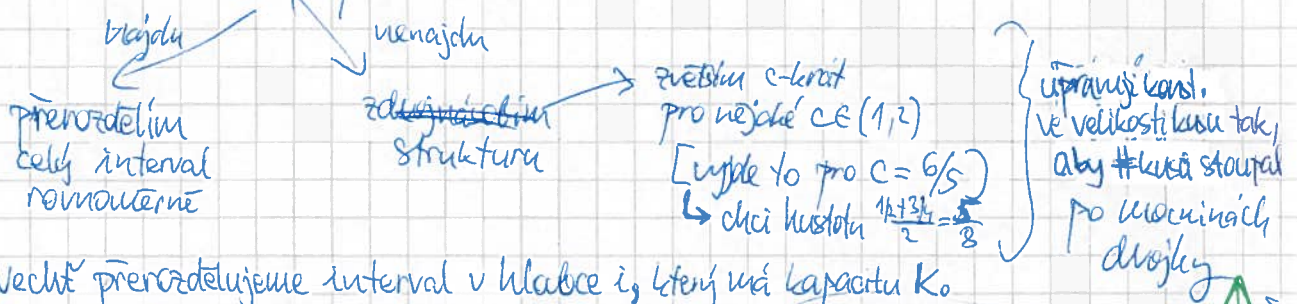 najdu
nenajdu
přerozdělím
celý interval
rovnoměrně
zdvojnásobím
strukturu
zvětším c-krát
pro nějaké c∈(1,2)
[vyjde to pro c = 6/5]
↳ chci hustotu (1/2+3/4)/2 = 5/8
upravuji konst.
ve velikosti kusu tak,
aby #kusů stoupal
po mocninách
dvojky
Nechť přerozdělujeme interval v hloubce i, který má kapacitu K.